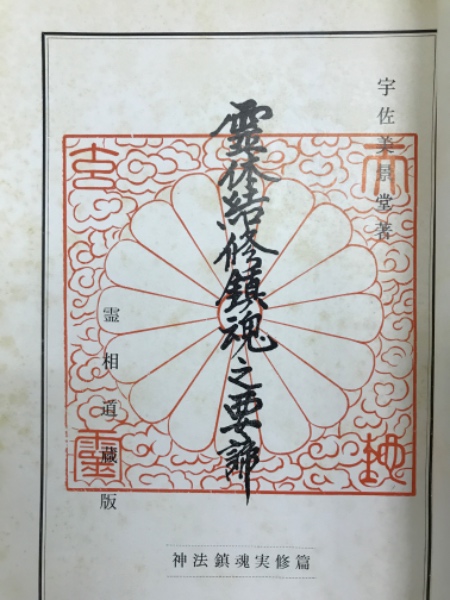 宇佐美景堂著
霊体結修鎮魂之要諦
霊相道藏版
天
地
玄
霊
神法鎮魂実修篇